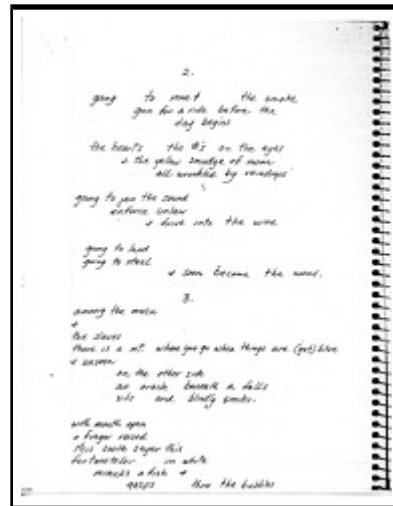 2.
going to meet the smoke
gun for a ride before the
day begins
the hearts the #'s on the eyes
& the yellow smudge of moon
all wrinkled by raindrops
going to join the sound
enforce
& drive into the wire
going to land
going to steel
& soon become the wind.
3.
among the
&
the slaves
there is a mt. where you go when things are (get) blue
& unseen
on the other side
an oracle beneath a falls
sits and blindly smokes.
with mouth open
a finger raised
this sooth sayer this
fortuneteller in white
mimicks a fish &
gasps thru the bubbles